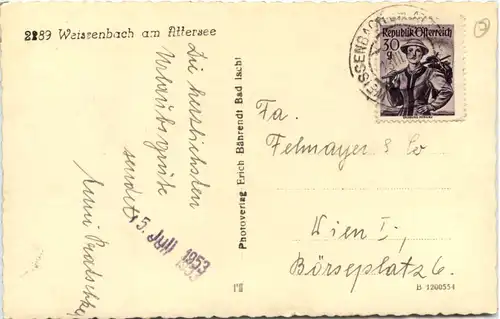 2189 Weissenbach am Attersee
Die herzlichsten
Urlaubsgrüße
sendet
5. Juli 1953
Photoverlag Erich Bährendt Bad Ischl
Republik Österreich
30
g
WEISSENBACH
Fa.
Felmayer & Co
Wien I,
Börseplatz 6.
B 1200554